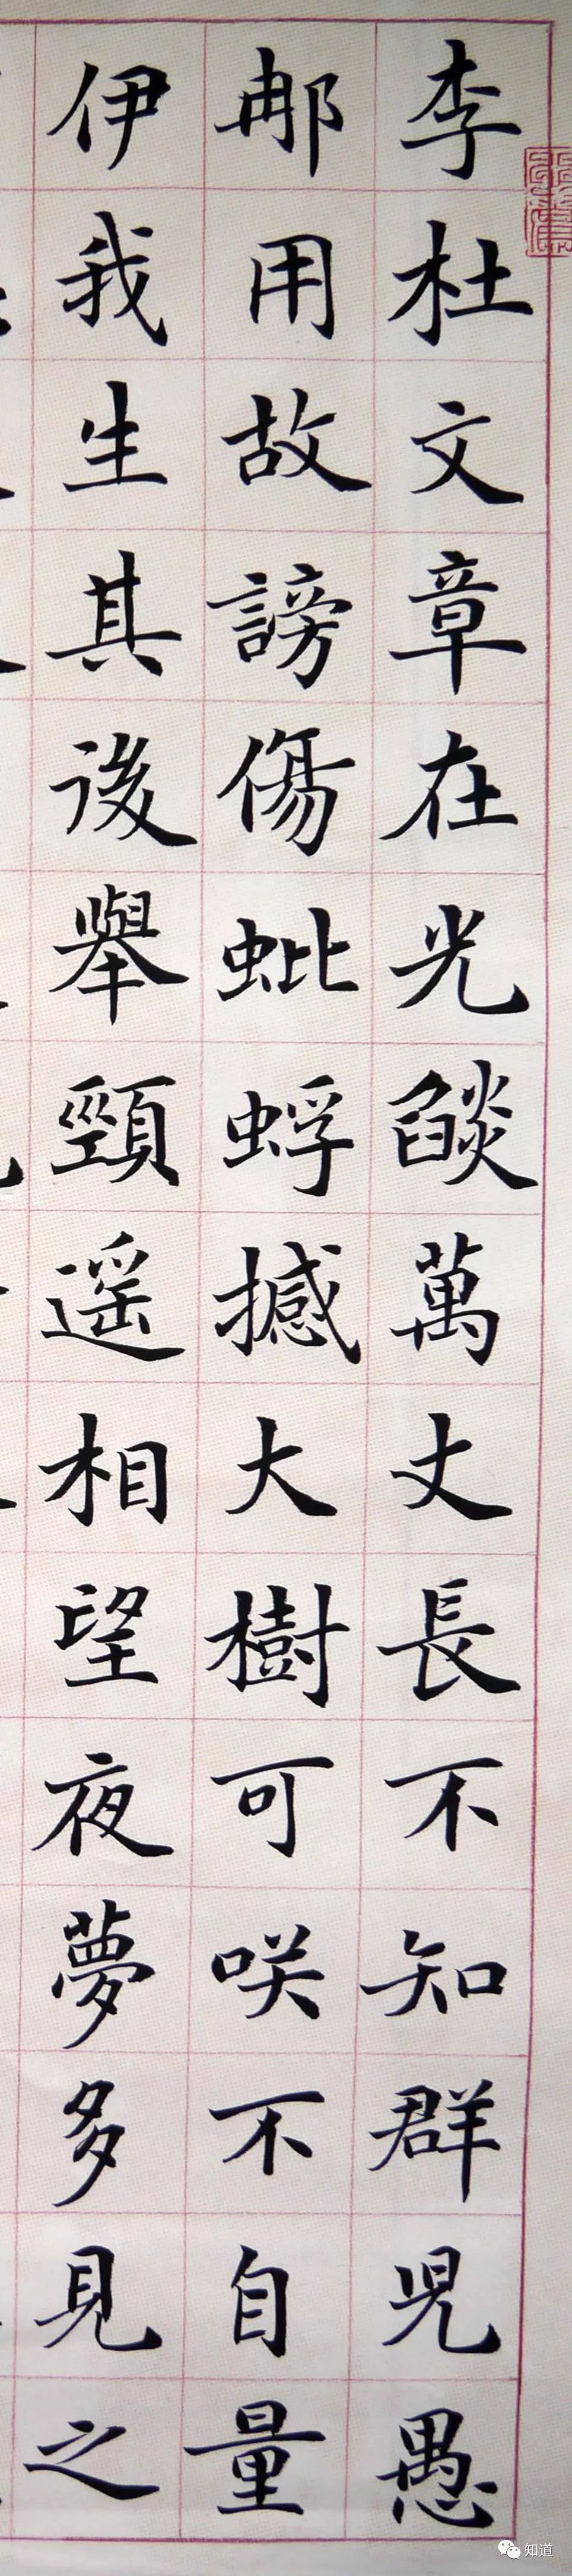 李杜文章在光燄萬丈長不知群児愚
那用故謗傷蚍蜉撼大樹可咲不自量
伊我生其後舉頸遥相望夜夢多見之
知道